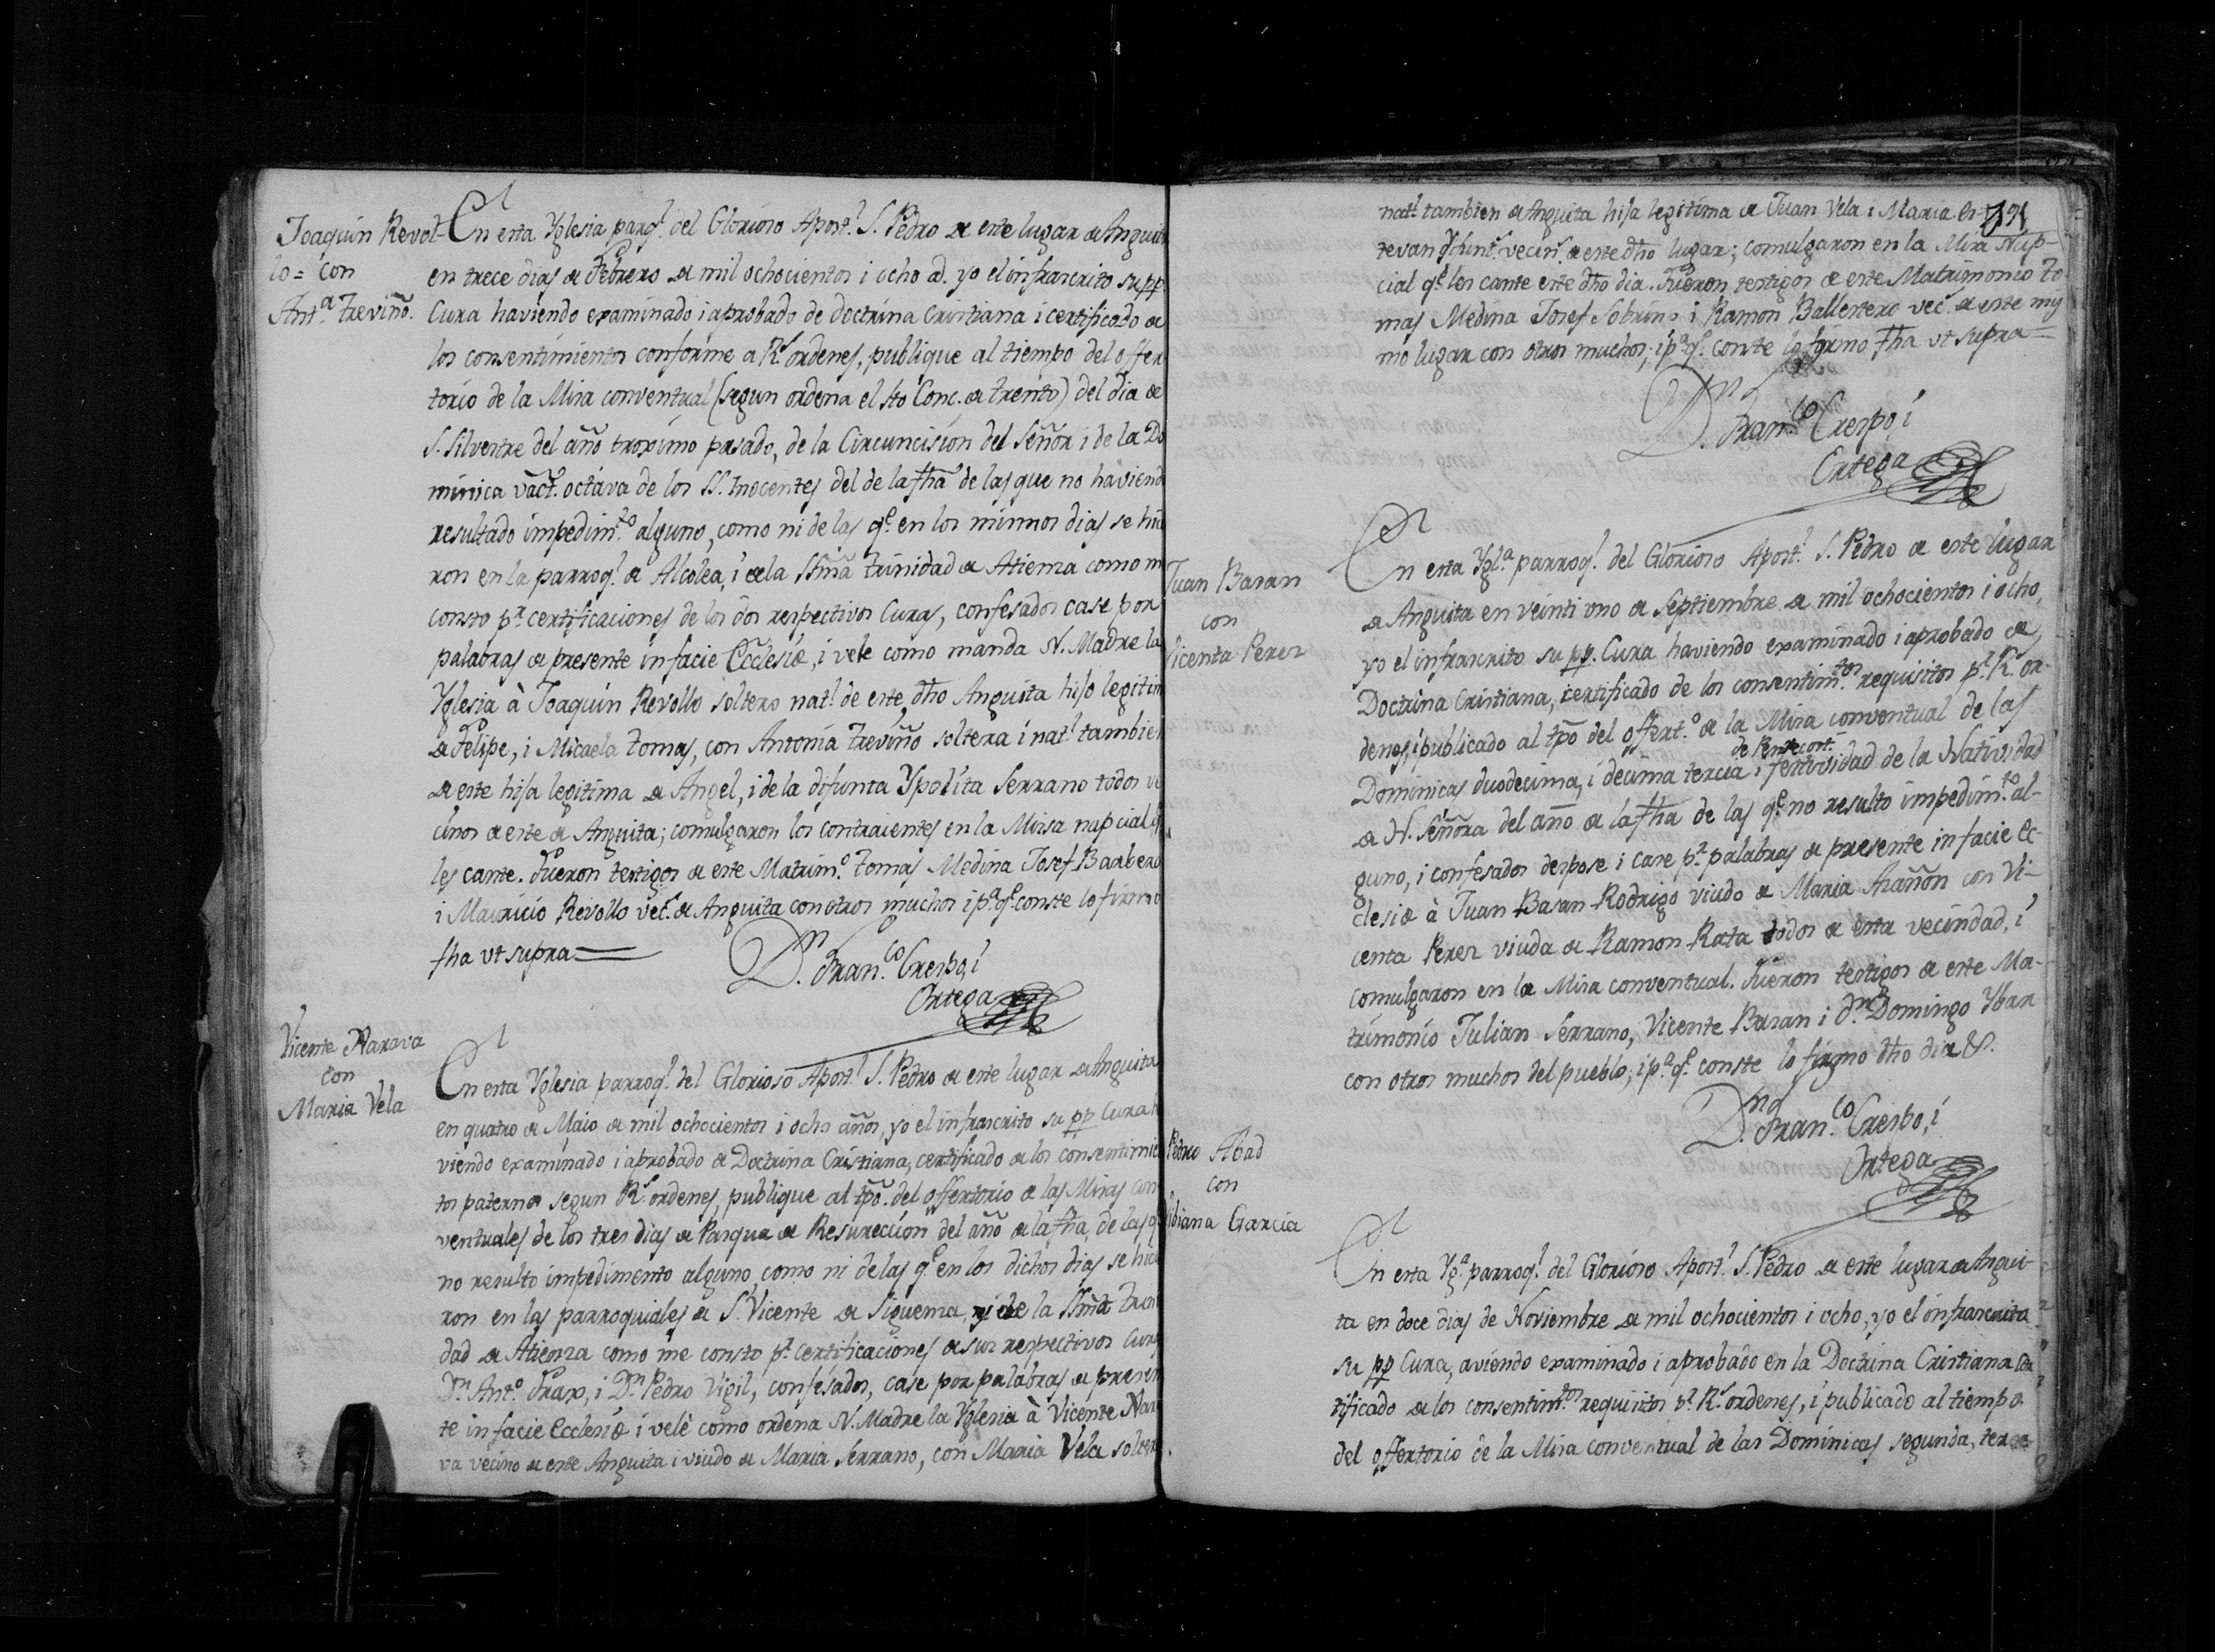 Joaquin Revol-
lo = con
Ant.ª Treviño.
En esta Yglesia parq.l del Glorioso Apost.l S. Pedro de este lugar de Anguit
en trece dias de Febrero de mil ochocientos i ocho a.d. yo el infrascrito su pp.
Cura haviendo examinado i aprobado de doctrina Cristiana i certificado de
los consentimientos conforme a R.s ordenes, publique al tiempo del offer
torio de la Misa conventual (segun ordena el sto Conc. de Trento) del dia de
S. Silvestre del año proximo pasado, de la Circuncision del Señor i de la Do
minica vact. octava de los SS. Inocentes del de la fha de las que no haviend
resultado impedim.to alguno, como ni de las q.e en los mismos dias se hici
ron en la parroq.l de Alcolea, i de la SSma Trinidad de Atienza como m
consto p.r certificaciones de los dos respectivos Curas, confesados case por
palabras de presente in facie Ecclesiæ, i vele como manda N. Madre la
Yglesia à Joaquin Revollo soltero nat.l de este dho Anguita hijo legitim
de Felipe, i Micaela Tomas, con Antonia Treviño soltera i nat.l tambie
de este hija legitima de Angel, i de la difunta Ypolita Serrano todos ve
cinos de este de Anguita; comulgaron los contraientes en la Missa nupcial q.
les cante. Fueron testigos de este Matrim.º Tomas Medina Josef Barbero
i Mauricio Revollo vec.s de Anguita con otros muchos i p.ª q.e conste lo firmo
fha vt supra =
D.n Fran.co Crespo, i
Ortega
Vicente Narava
con
Maria Vela
En esta Yglesia parroq.l del Glorioso Apost.l S. Pedro de este lugar de Anguita
en quatro de Maio de mil ochocientos i ocho años, yo el infrascrito su pp Cura h
viendo examinado i aprobado de Doctrina Cristiana, certificado de los consentimien
tos paternos segun R.s ordenes, publique al tpõ. del offertorio de las Misas con
ventuales de los tres dias de Pasqua de Resureccion del año de la fha, de las q
no resulto impedimento alguno, como ni de las q.e en los dichos dias se hici
ron en las parroquiales de S. Vicente de Siguenza, ni de la SSma Trini
dad de Atienza como me consto p.r certificaciones de sus respectivos Cura
D.n Ant.º Frax, i D.n Pedro Vigil, confesados, case por palabras de presen
te in facie Ecclesiæ i velé como ordena N. Madre la Yglesia à Vicente Nar
va vecino de este Anguita i viudo de Maria Serrano, con Maria Vela solter
nat.l tambien de Anguita hija legitima de Juan Vela i Maria Es-
tevan difunt.s vecin.s de este dho lugar; comulgaron en la Misa Nup-
cial q.e les cante este dho dia. Fueron testigos de este Matrimonio To
mas Medina Josef Sobrino i Ramon Ballestero vec.s de este mis
mo lugar con otros muchos; i p.ª q.e conste lo firmo fha vt supra =
D.n Fran.co Crespo, i
Ortega
Juan Basan
con
Vicenta Perez
En esta Ygl.ª parroq.l del Glorioso Apost.l S. Pedro de este lugar
de Anguita en veinti vno de Septiembre de mil ochocientos i ocho,
yo el infrascrito su pp. Cura haviendo examinado i aprobado de
Doctrina Cristiana, certificado de los consentim.tos requisitos p.r R.s or-
denes, i publicado al tpõ del offert.º de la Misa conventual de las
Dominicas duodecima, i decima tercia de Pentecost. i festividad de la Natividad
de N. Señora del año de la fha de las q.e no resulto impedim.to al-
guno, i confesados despose i case p.r palabras de presente in facie Ec-
clesiæ à Juan Basan Rodrigo viudo de Maria Arañon con Vi-
centa Perez viuda de Ramon Rata todos de esta vecindad, i
comulgaron en la Misa conventual. Fueron testigos de este Ma-
trimonio Julian Serrano, Vicente Basan i d.n Domingo Ybar
con otros muchos del pueblo; i p.ª q.e conste lo firmo dho dia &.
D.n Fran.co Crespo, i
Ortega
Pedro Abad
con
ibiana Garcia
En esta Yg.ª parroq.l del Glorioso Apost.l S. Pedro de este lugar de Angui-
ta en doce dias de Noviembre de mil ochocientos i ocho, yo el infrascrito
su pp Cura, aviendo examinado i aprobado en la Doctrina Cristiana cer
tificado de los consentim.tos requisitos p.r R.s ordenes, i publicado al tiempo
del offertorio de la Misa conventual de las Dominicas segunda, terce